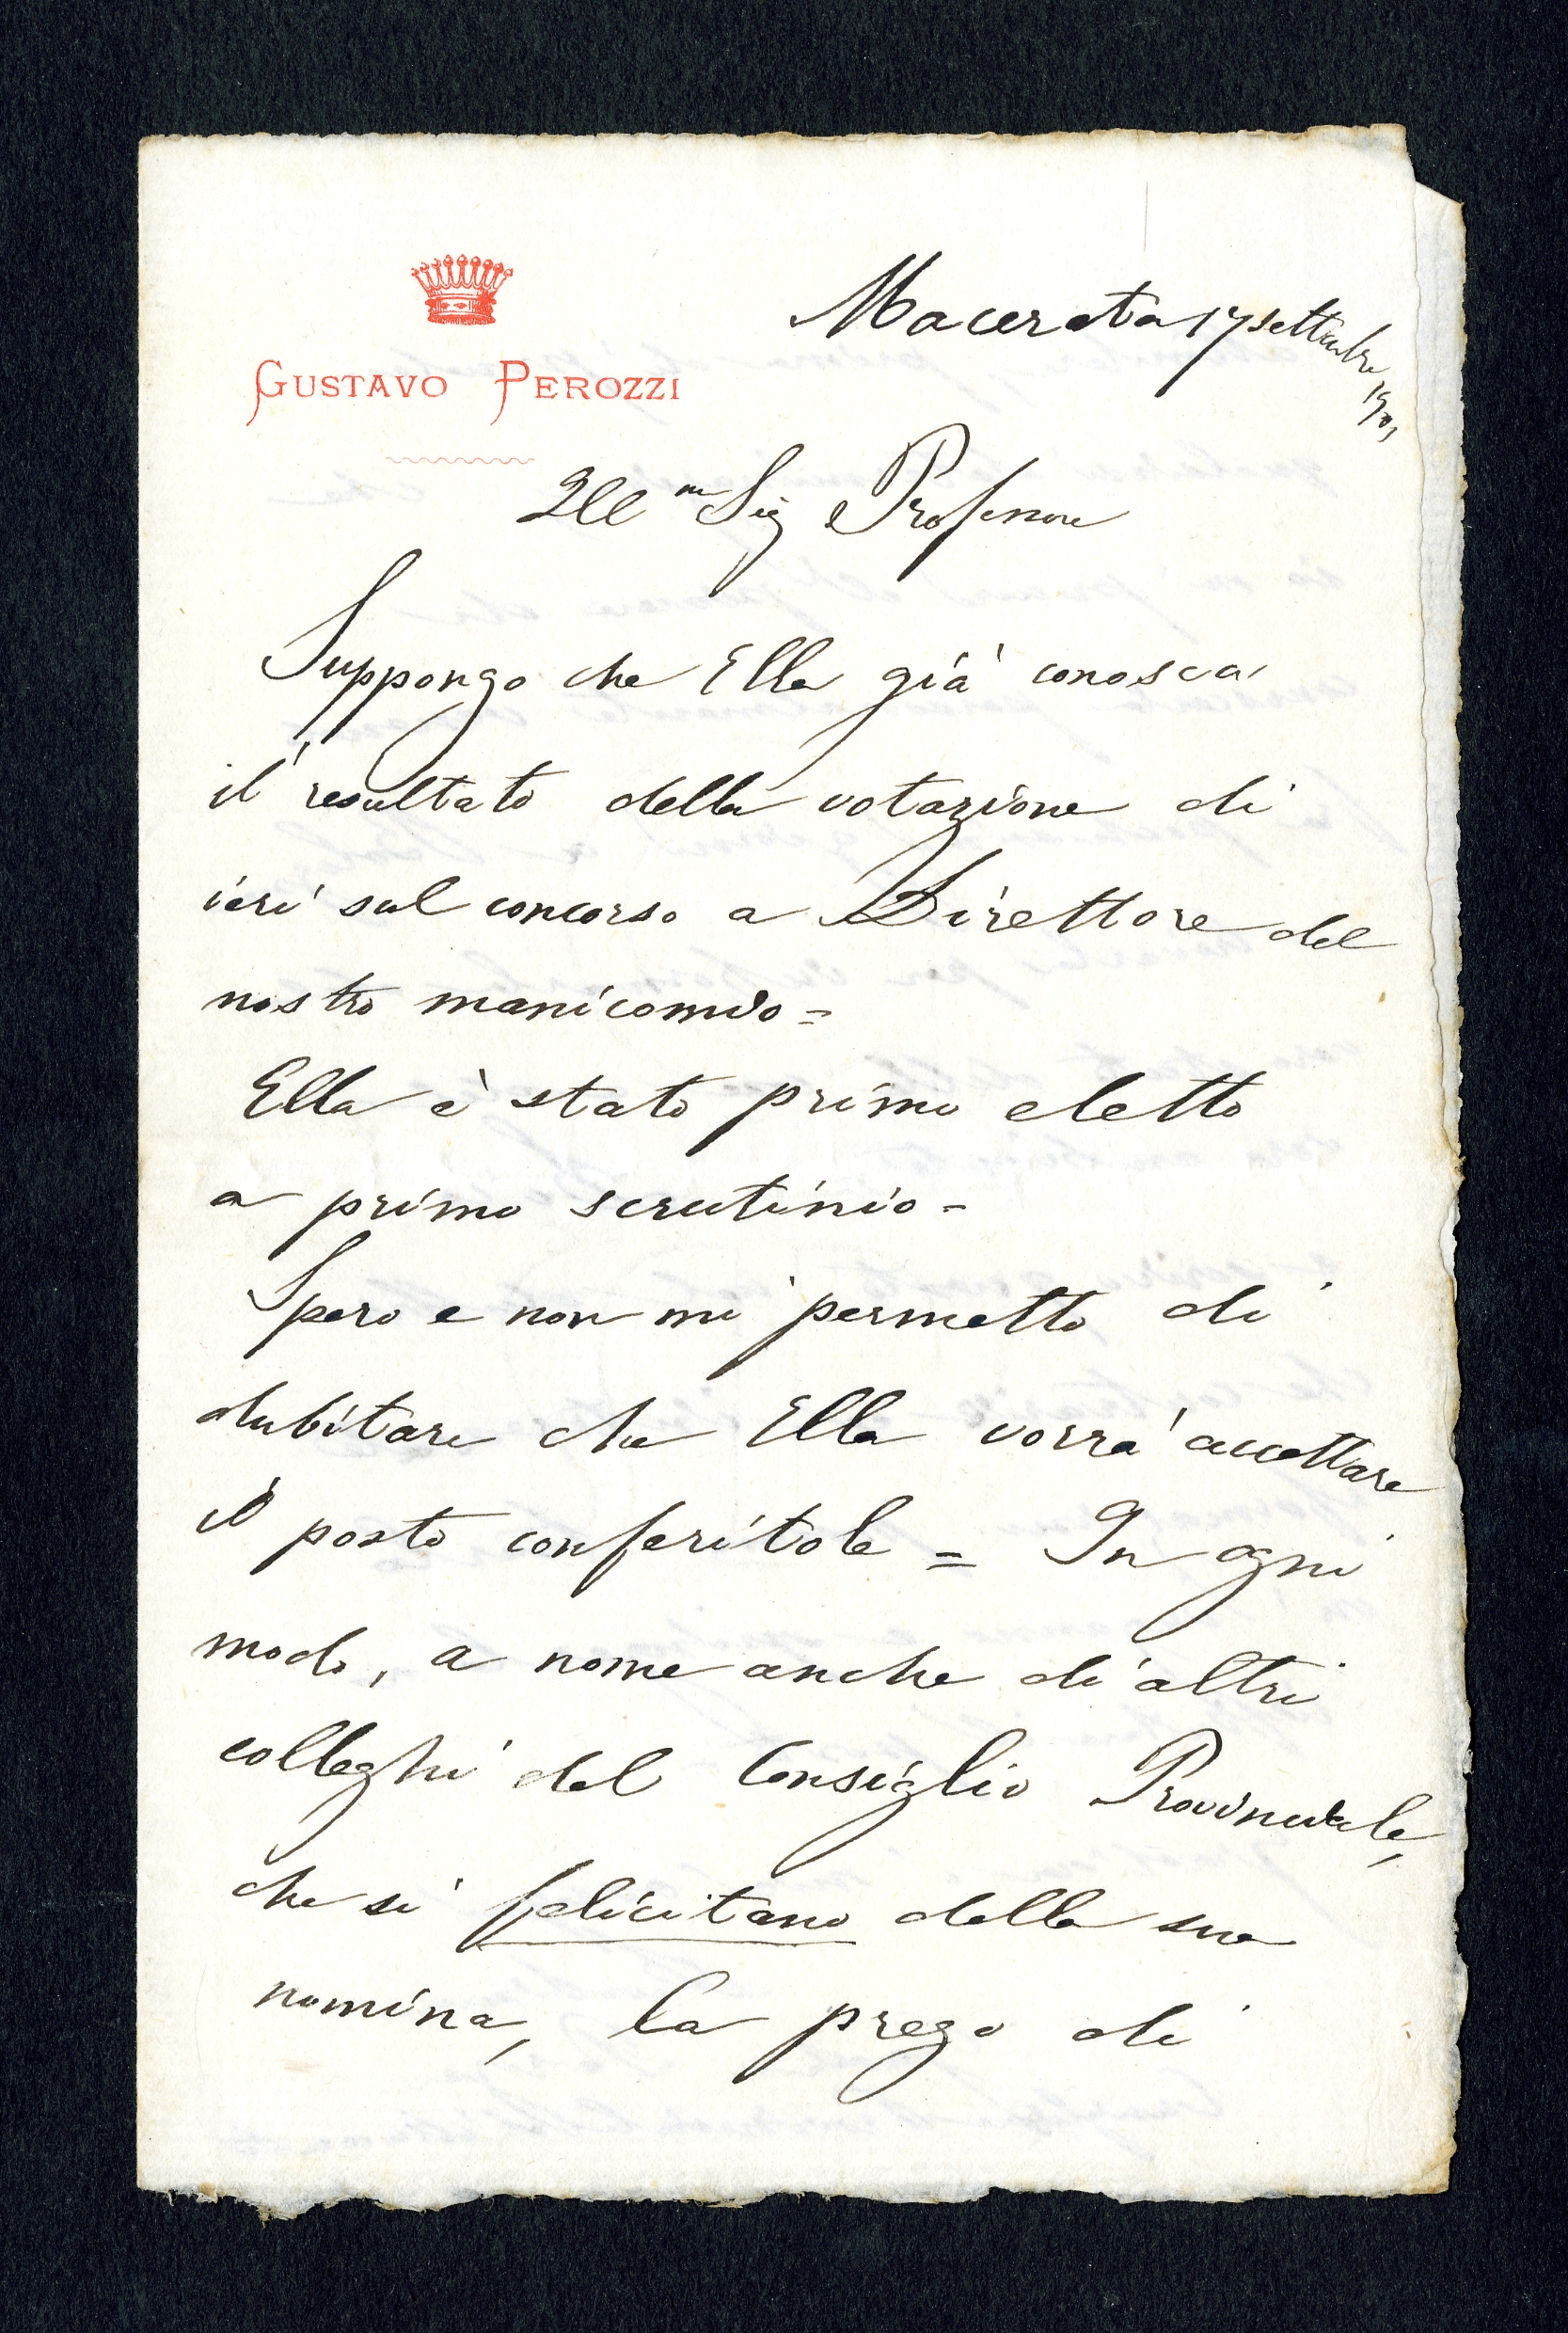 GUSTAVO PEROZZI
Macerata 17 settembre
1901
Ill.mo Sig Professore
Suppongo che Ella già conosca
il resultato della votazione di
ieri sul concorso a Direttore del
nostro manicomio =
Ella è stato primo eletto
a primo scrutinio -
Spero e non mi permetto di
dubitare che Ella vorrà accettare
il posto conferitole = In ogni
modo, a nome anche di altri
colleghi del Consiglio Provinciale,
che si felicitano della sua
nomina, La prego di